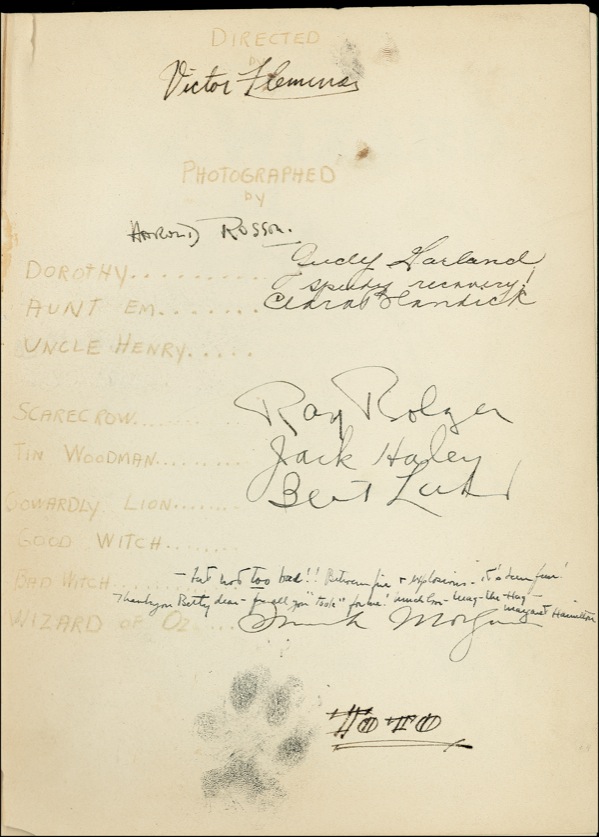 DIRECTED
BY
Victor Fleming
PHOTOGRAPHED
by
Harold Rosson.
DOROTHY.......... Judy Garland
speedy recovery!
AUNT EM........ Clara Blandick
UNCLE HENRY.....
SCARECROW.......... Ray Bolger
TIN WOODMAN........ Jack Haley
COWARDLY LION....... Bert Lahr
GOOD WITCH.......
BAD WITCH.......... - but not too bad!! Between fire & explosions - it's been fun!
Thank you Betty dear - for all you "took" for me! Much love - Meg-the-Hag -
Margaret Hamilton
WIZARD OF OZ..... Frank Morgan
TOTO